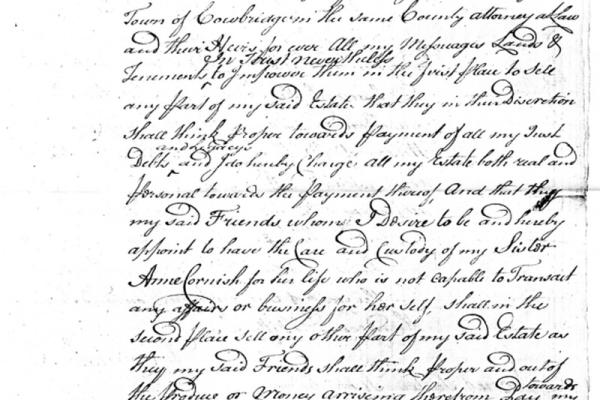 Town of Cowbridge in the same County attorney at Law
and their Heirs for ever All my Messuages Lands &
In Trust nevertheless
Tenements to Impower them in the first place to sell
any Part of my said Estate that they in their Discretion
shall think Proper towards Payment of all my Just
and Legacys
Debts and I do hereby Charge all my Estate both real and
Personal towards the Payment thereof And that they
my said Friends whome I Desire to be and hereby
appoint to have the Care and Custody of my Sister
Anne Cornish for her life who is not capable to Transact
any affairs or business for her self, shall in the
second place sell any other part of my said Estate as
they my said Friends shall think Proper and out of
towards
the Produce or Money arriseing therefrom Pay my